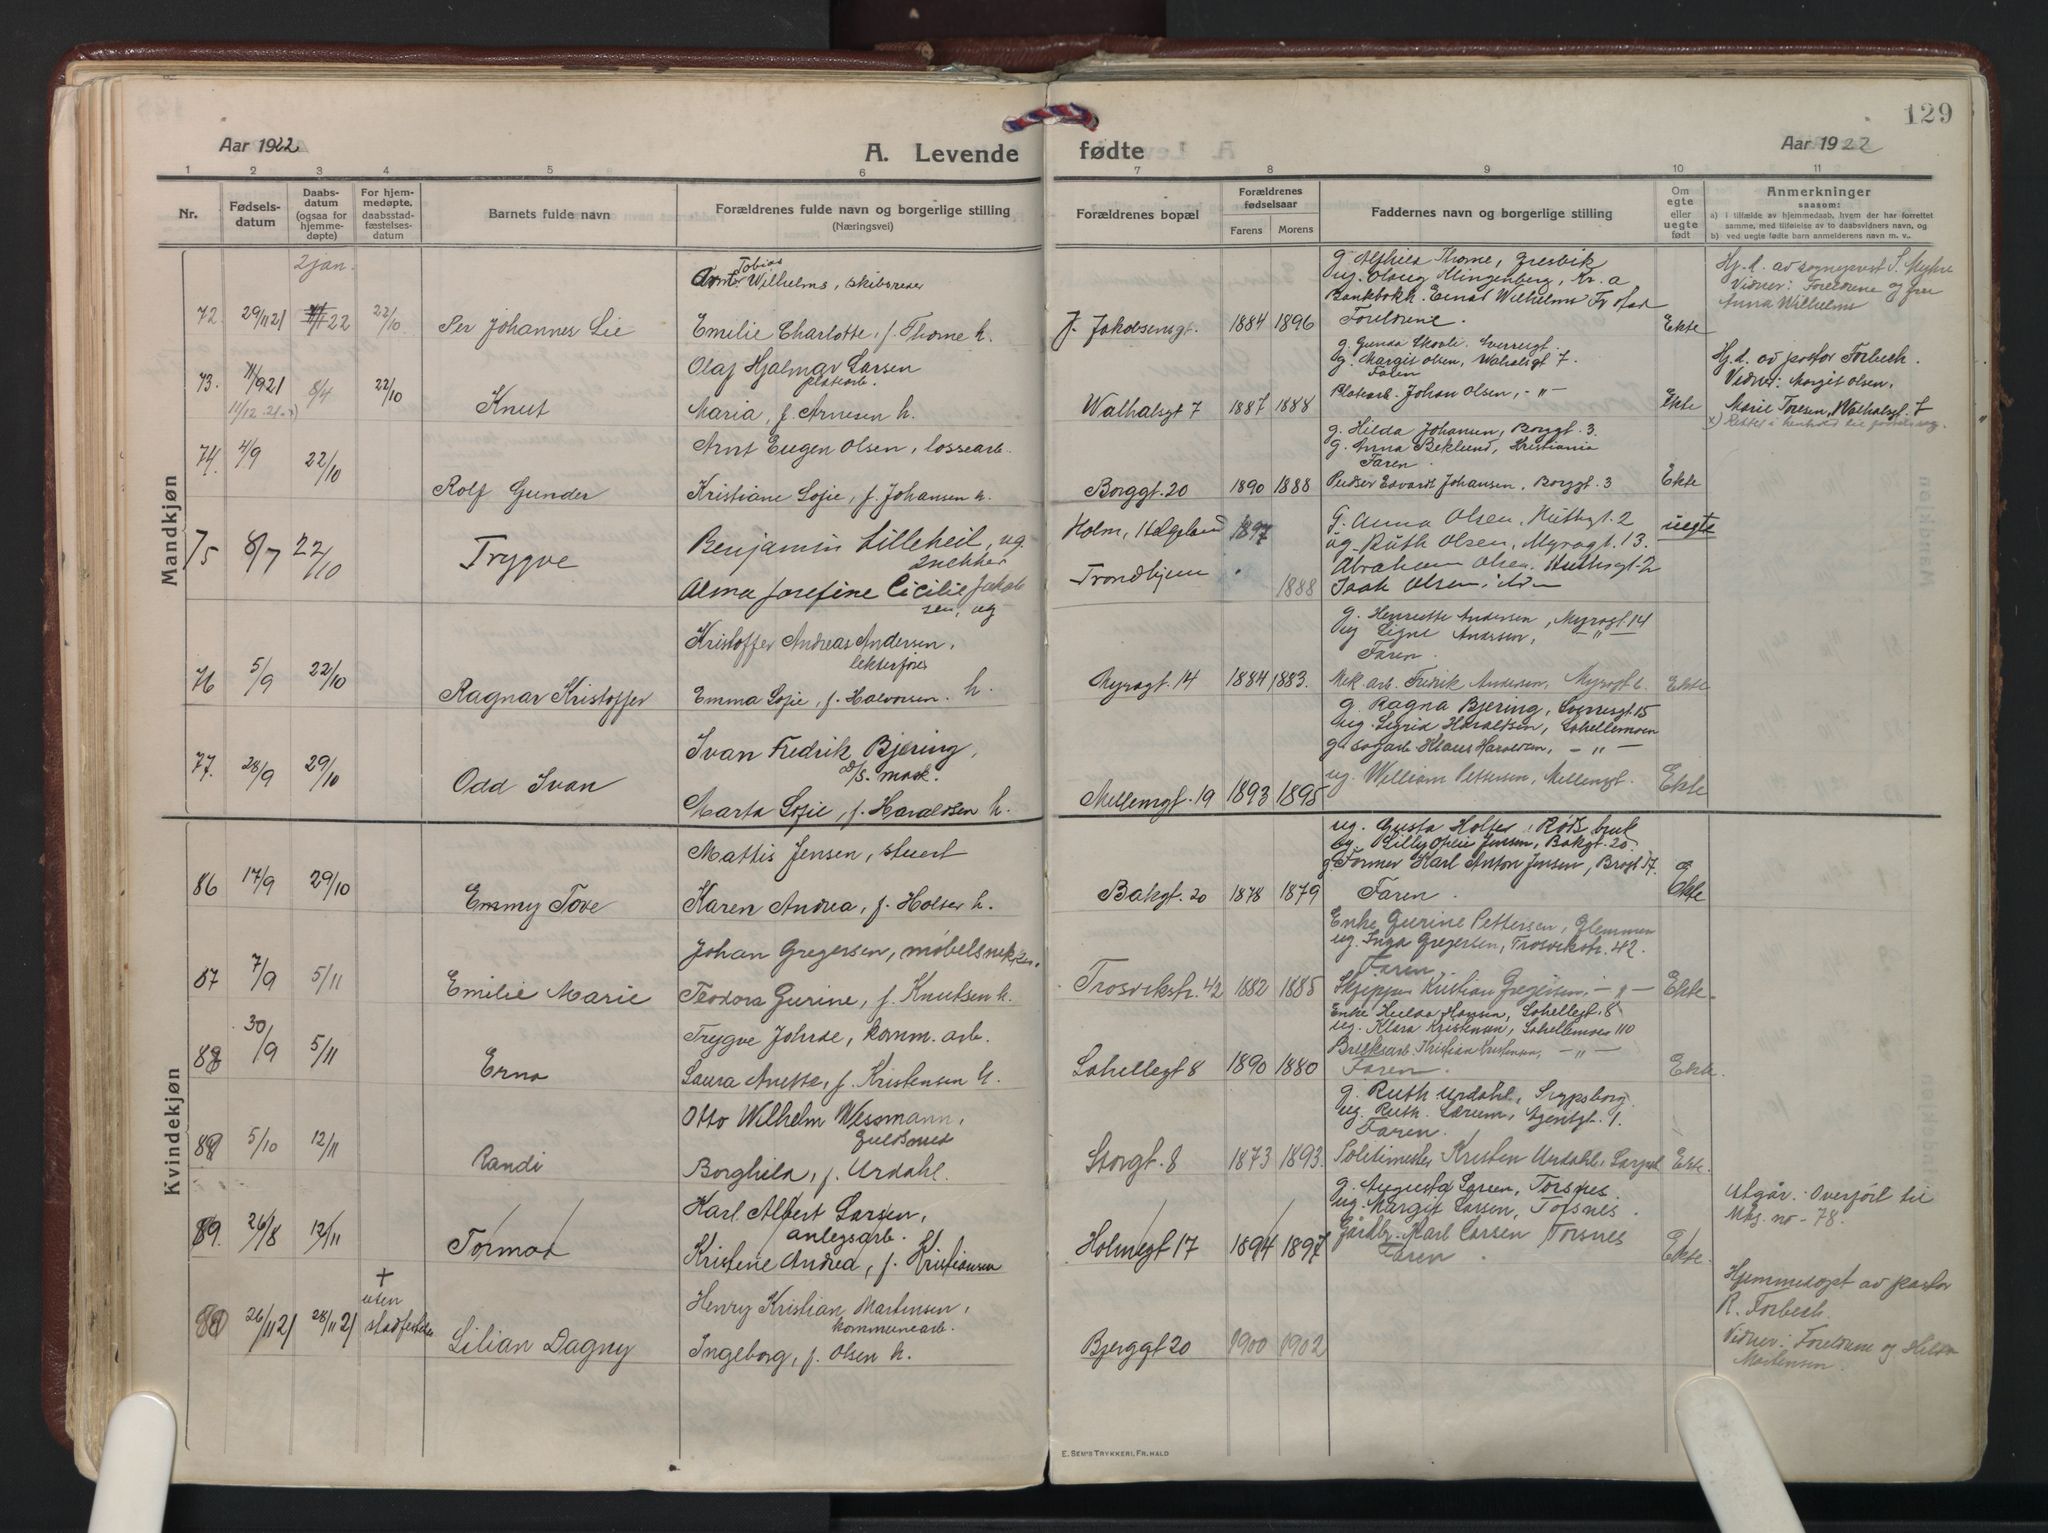 129
Aar 1922
A. Levende fødte
Aar 1922
1 2 3 4 5 6 7 8 9 10 11
Nr.
Fødsels-
datum
Daabs-
datum
(ogsaa for
hjemme-
døpte)
For hjem-
medøpte,
daabsstad-
fæstelses-
datum
Barnets fulde navn
Forældrenes fulde navn og borgerlige stilling
(Næringsvei)
Forældrenes bopæl
Forældrenes
fødselsaar
Farens Morens
Faddernes navn og borgerlige stilling
Om
egte
eller
uegte
født
Anmerkninger
saasom:
a) i tilfælde av hjemmedaab, hvem der har forrettet
samme, med tilføielse av to daabsvidners navn, og
b) ved uegte fødte barn anmelderens navn m. v..
Mandkjøn
72. 29/11 21
2 jan.
22
22/10
Per Johannes Lie
Tobias
Wilhelms, skibsreder
Emilie Charlotte, f. Thorne h.
J. Jakobsensgt. 1884 1896
g. Alfhild Thorne, Gresvik
ug. Olaug Klingenberg, Kr. a
Bankbokh. Einar Wilhelms Fr.stad
Foreldrene.
Ekte
Hj. d. av sogneprest S. Myhre
Vidner: Foreldrene og fru
Anna Wilhelms
73. 11/9 21
11/12 21 x)
8/4
22/10
Knut
Olaf Hjalmar Larsen
platearb.
Maria, f. Arnesen h.
Walhalsgt 7 1887 1888
g. Gunda Skovli, Sverresgt.
g. Margit Olsen, Walhalsgt 7.
Faren
Platearb. Johan Olsen, - " -
Ekte
Hj. d. av pastor Forbech.
Vidner: Margit Olsen,
Marie Toresen, Walhalsgt. 7
74. 4/9
22/10
Rolf Gunder
Arnt Eugen Olsen, lossearb.
Kristiane Sofie, f. Johansen h.
Borggt. 20 1890 1888
g. Hilda Johansen, Borggt. 3.
g. Anna Beklund, Kristiania
Faren.
Pudser Edvardt Johansen, Borggt. 3
Ekte
75 8/7 22/10
Trygve
Benjamin Lilleheil, ug.
snekker
Alma Josefine Cicilie Jakob-
sen, ug
Holm, Helgeland 1897
Trondhjem 1888
G. Anna Olsen, Huthsgt. 2
ug. Ruth Olsen, Myragt. 13.
Abraham Olsen, Huthsgt. 2
Isak Olsen,
uegte
76 5/9 22/10
Ragnar Kristoffer
Kristoffer Andreas Andersen,
lekterfører
Emma Sofie, f. Halvorsen. h.
Myragt. 14 1884 1883.
g. Henriette Andersen, Myragt. 14
ug Signe Andersen, - " -
Faren.
Mek. arb. Fredrik Andersen, Myragt 6.
Ekte
77. 28/9 29/10
Odd Ivan
Ivan Fredrik Bjering,
d/s. mask.
Marta Sofie, f. Haraldsen h.
Mellemgt. 19 1893 1895
g. Ragna Bjering, Sverresgt. 15
ug. Sigrid Haraldsen, Lahellemoen
g. sagarb. Klaus Haraldsen, - " -
ug. William Pettersen, Mellemgt.
Ekte
Kvindekjøn
86 17/9 29/10
Emmy Tove
Mattis Jensen, stuert
Karen Andrea, f. Holter h.
Bakgt. 20 1878 1879
ug. Gusta Holter, Røds bruk
ug. Lilly Ofelie Jensen, Bakgt. 20.
g. Former Karl Anton Jensen, Brogt 17.
Faren.
Ekte
87 7/9 5/11
Emilie Marie
Johan Gregersen, møbelsnekker.
Teodora Gurine, f. Knutsen h.
Trosvikstr. 42 1882 1885
Enke Gurine Pettersen, Glemmen
ug. Inga Gregersen, Trosvikstr. 42.
Faren
Skipper Kristian Gregersen, - " -
Ekte.
88 30/9 5/11
Erna
Trygve Johrde, komm. arb.
Laura Anette, f. Kristensen h.
Lahellegt 8 1890 1880
Enke Hulda Hansen, Lahellegt. 8
ug. Klara Kristensen, Lahellemoen 110
Bruksarb. Kristian Kristensen, - " -
Faren.
Ekte.
5/10 12/11
Randi
Otto Wilhelm Wessmann,
Guldsmed
Borghild, f. Urdahl.
Storgt. 8 1873 1893.
g. Ruth Urdahl, Sarpsborg.
ug. Ruth Larum, Agentgt. 1.
Faren.
Politimester Kristen Urdahl, Sarpsb.
Ekte.
89. 26/8 12/11
Tormod
Karl Albert Larsen,
anlegsarb.
Kristine Andrea, f. Kristiansen
Holmegt 17 1894 1897
g. Augusta Larsen, Torsnes.
ug. Margit Larsen, Torsnes.
Gårdbr. Karl Larsen Torsnes
Faren.
Ekte.
Utgår. Overført til
Mkj. no - 78.
26/11 21 28/11 21
+
uten
stadfestelse
Lilian Dagny
Henry Kristian Martinsen,
kommunearb.
Ingeborg, f. Olsen h.
Bjerggt 20 1900 1902
Hjemmedøpt av pastor
R. Forbech.
Vidner: Foreldrene og Hilda
Martinsen.
E. SEM'S TRYKKERI, FR.HALD